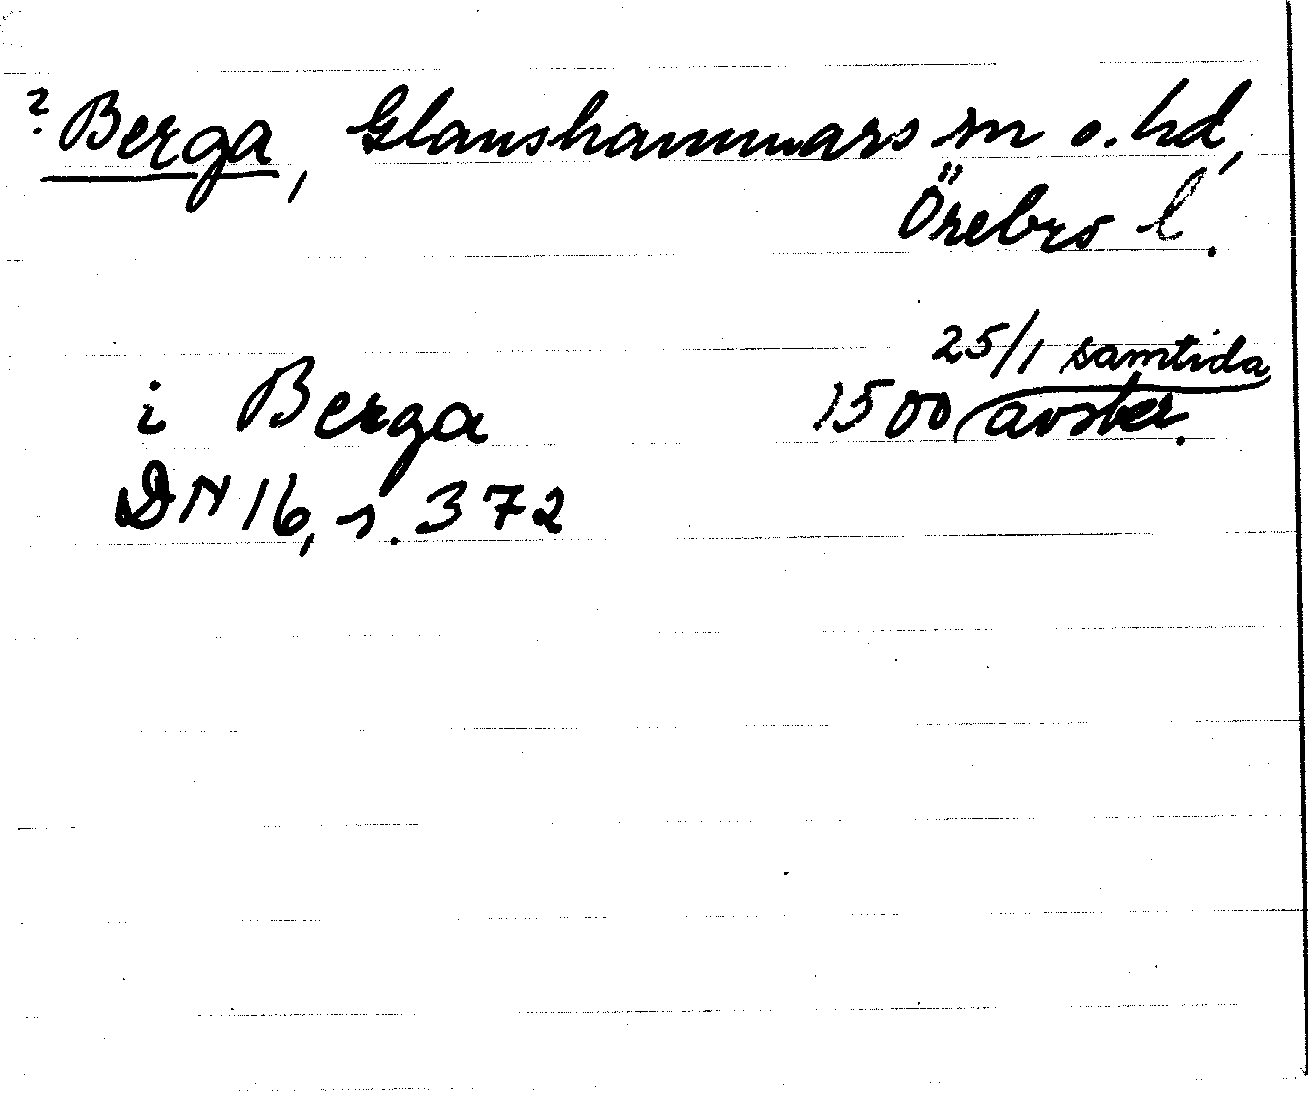 ? Berga, Glanshammars sn o. hd,
Örebro l.
25/1 samtida
i Berga 1500 avskr.
DN 16, s. 372